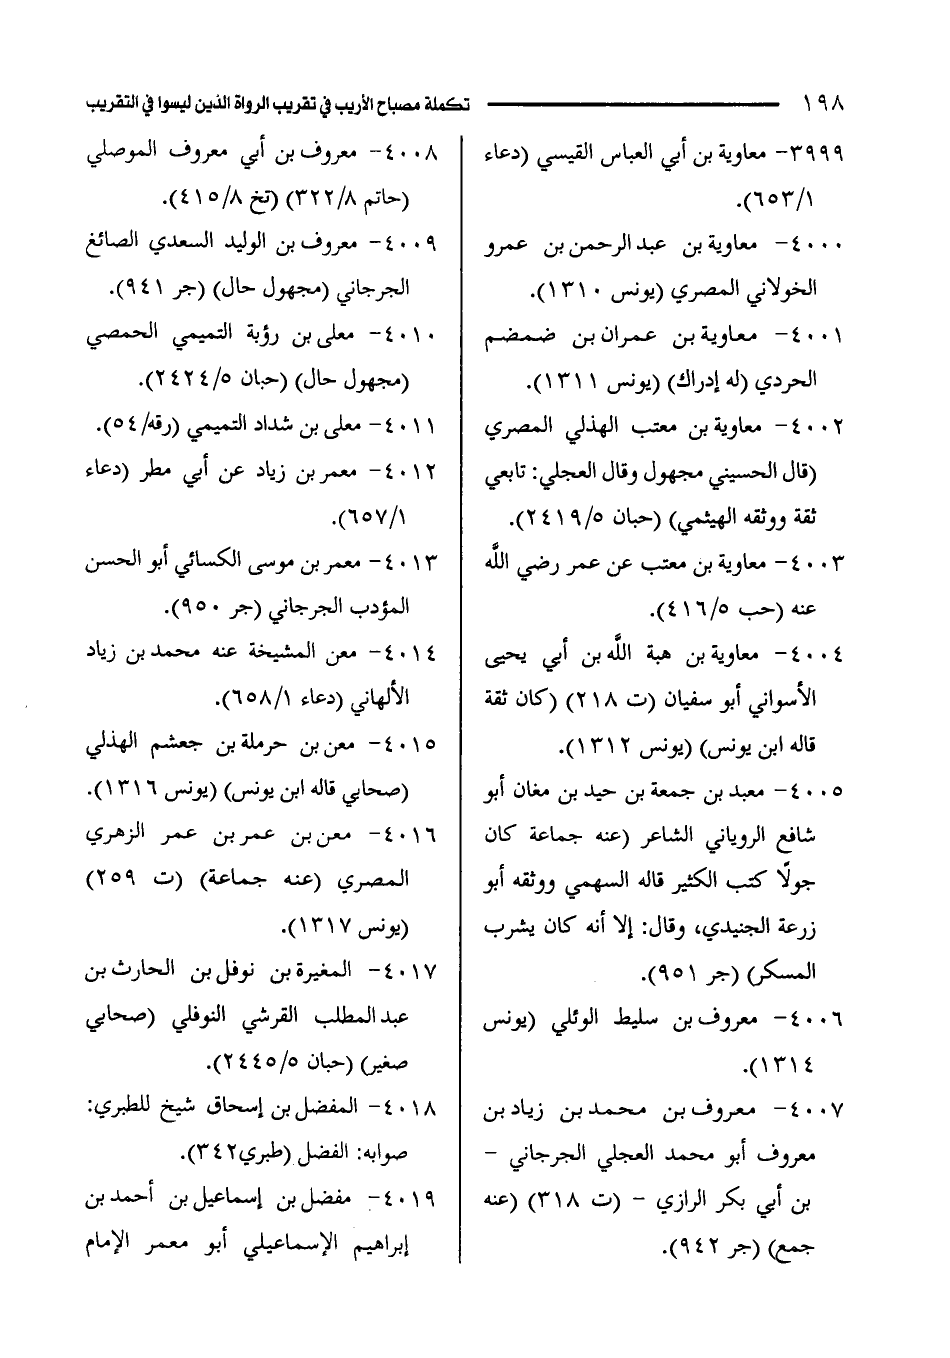 ١٩٨ تكملة مصباح الأريب في تقريب الرواة الذين ليسوا في التقريب
٣٩٩٩- معاوية بن أبي العباس القيسي (دعاء
٦٥٣/١).
٤٠٠٠- معاوية بن عبد الرحمن بن عمرو
الخولاني المصري (يونس ١٣١٠).
٤٠٠١- معاوية بن عمران بن ضمضم
الحردي (له إدراك) (يونس ١٣١١).
٤٠٠٢- معاوية بن معتب الهذلي المصري
(قال الحسيني مجهول وقال العجلي: تابعي
ثقة ووثقه الهيثمي) (حبان ٢٤١٩/٥).
٤٠٠٣- معاوية بن معتب عن عمر رضي اللَّه
عنه (حب ٤١٦/٥).
٤٠٠٤- معاوية بن هبة اللَّه بن أبي يحيى
الأسواني أبو سفيان (ت ٢١٨) (كان ثقة
قاله ابن يونس) (يونس ١٣١٢).
٤٠٠٥- معبد بن جمعة بن حيد بن مغان أبو
شافع الروياني الشاعر (عنه جماعة كان
جولًا كتب الكثير قاله السهمي ووثقه أبو
زرعة الجنيدي، وقال: إلا أنه كان يشرب
المسكر) (جر ٩٥١).
٤٠٠٦- معروف بن سليط الوئلي (يونس
١٣١٤).
٤٠٠٧- معروف بن محمد بن زياد بن
معروف أبو محمد العجلي الجرجاني -
بن أبي بكر الرازي - (ت ٣١٨) (عنه
جمع) (جر ٩٤٢).
٤٠٠٨- معروف بن أبي معروف الموصلي
(حاتم ٣٢٢/٨) (تخ ٤١٥/٨).
٤٠٠٩- معروف بن الوليد السعدي الصائغ
الجرجاني (مجهول حال) (جر ٩٤١).
٤٠١٠- معلى بن رؤبة التميمي الحمصي
(مجهول حال) (حبان ٢٤٢٤/٥).
٤٠١١- معلى بن شداد التميمي (رقه/٥٤).
٤٠١٢- معمر بن زياد عن أبي مطر (دعاء
٦٥٧/١).
٤٠١٣- معمر بن موسى الكسائي أبو الحسن
المؤدب الجرجاني (جر ٩٥٠).
٤٠١٤- معن المشيخة عنه محمد بن زياد
الألهاني (دعاء ٦٥٨/١).
٤٠١٥- معن بن حرملة بن جعشم الهذلي
(صحابي قاله ابن يونس) (يونس ١٣١٦).
٤٠١٦- معن بن عمر بن عمر الزهري
المصري (عنه جماعة) (ت ٢٥٩)
(يونس ١٣١٧).
٤٠١٧- المغيرة بن نوفل بن الحارث بن
عبد المطلب القرشي النوفلي (صحابي
صغير) (حبان ٢٤٤٥/٥).
٤٠١٨- المفضل بن إسحاق شيخ للطبري:
صوابه: الفضل (طبري٣٤٢).
٤٠١٩- مفضل بن إسماعيل بن أحمد بن
إبراهيم الإسماعيلي أبو معمر الإمام